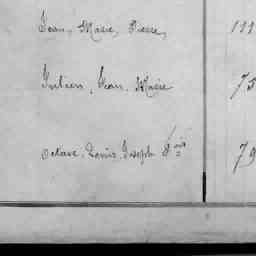 Jean, Marie, Pierre, 111
Julien, Jean, Marie 75
Octave, Louis, Joseph 79